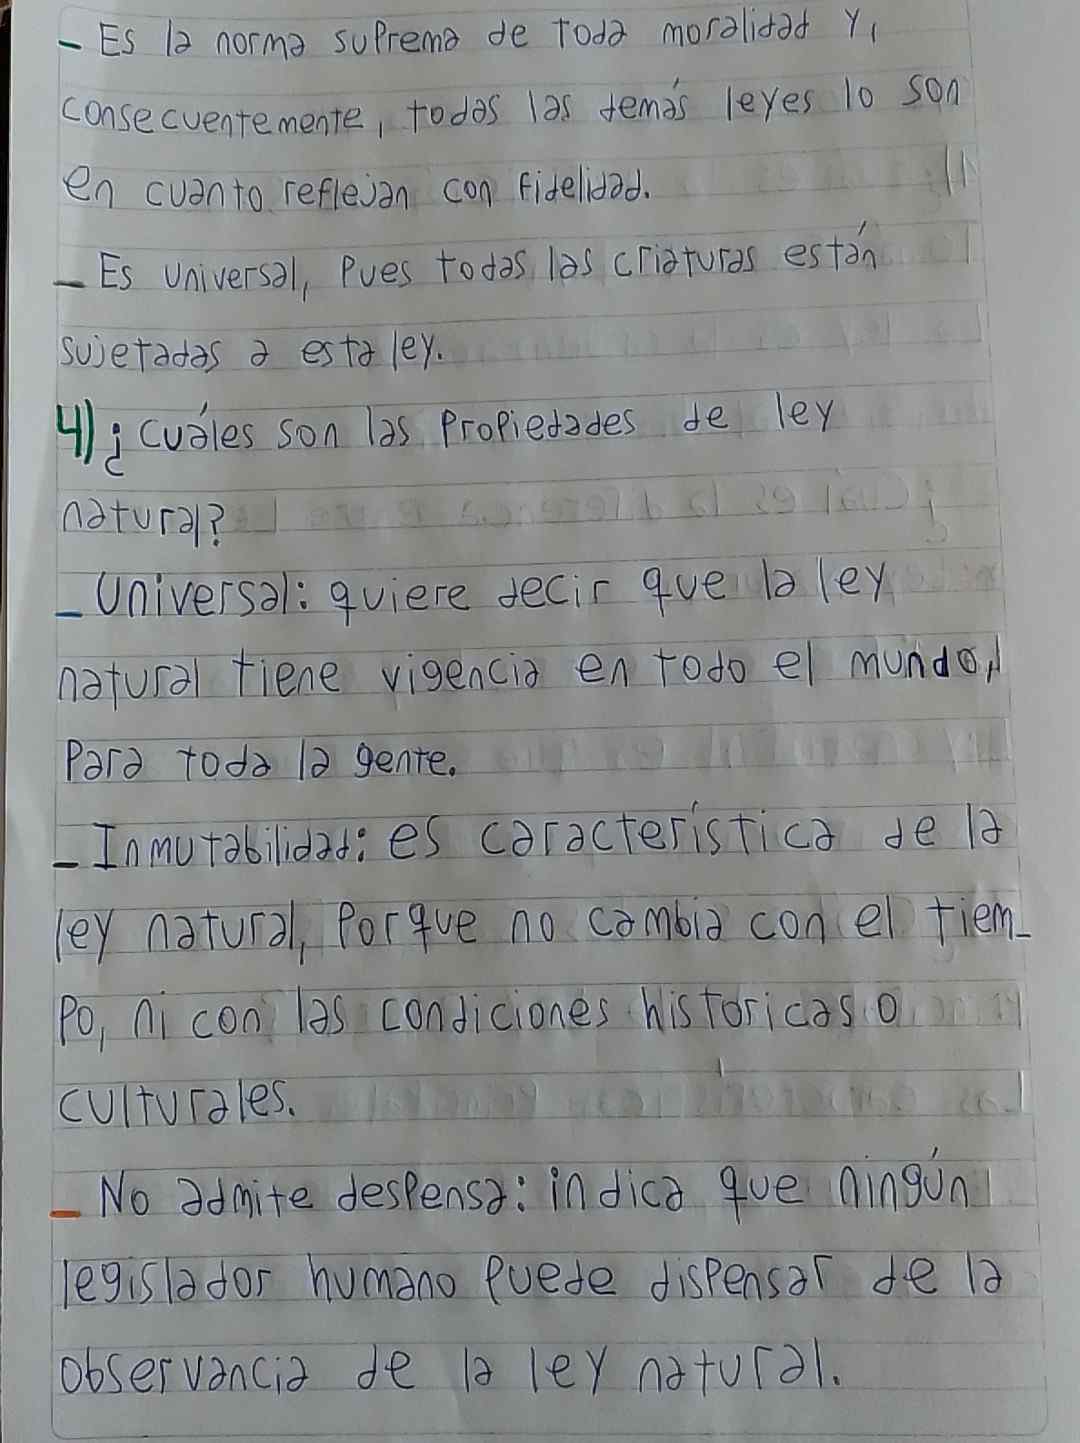 - Es la norma suprema de toda moralidad y,
consecuentemente, todas las demás leyes lo son
en cuanto reflejan con fidelidad.
- Es universal, pues todas las criaturas están
sujetadas a esta ley.
4) ¿cuáles son las propiedades de ley
natural?
- Universal: quiere decir que la ley
natural tiene vigencia en todo el mundo,
para toda la gente.
- Inmutabilidad: es característica de la
ley natural, porque no cambia con el tiem-
po, ni con las condiciones historicas o
culturales.
- No admite despensa: indica que ningún
legislador humano puede dispensar de la
observancia de la ley natural.